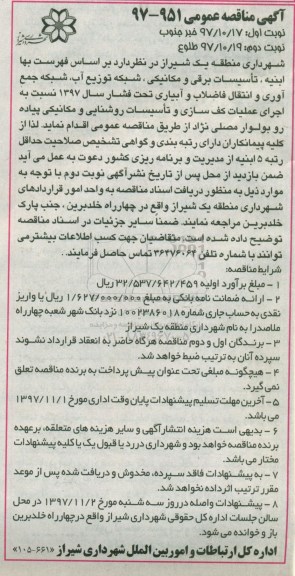 آگهی مناقصه عمومی ۹۵۱-۹۷
نوبت اول: ۹۷/۱۰/۱۷ خبر جنوب
نوبت دوم: ۹۷/۱۰/۱۹ طلوع
شهرداری منطقه یک شیراز در نظر دارد بر اساس فهرست بها
ابنیه ، تأسیسات برقی و مکانیکی ، شبکه توزیع آب، شبکه جمع
آوری و انتقال فاضلاب و آبیاری تحت فشار سال ۱۳۹۷ نسبت به
اجرای عملیات کف سازی و تأسیسات روشنایی و مکانیکی پیاده
رو بولوار مصلی نژاد از طریق مناقصه عمومی اقدام نماید. لذا از
کلیه پیمانکاران دارای رتبه بندی و گواهی تشخیص صلاحیت حداقل
رتبه ۵ ابنیه از مدیریت و برنامه ریزی کشور دعوت به عمل می آید
ضمن بازدید از محل پس از تاریخ نشر آگهی نوبت دوم با توجه به
موارد ذیل به منظور دریافت اسناد مناقصه به واحد امور قراردادهای
شهرداری منطقه یک شیراز واقع در چهارراه خلدبرین ، جنب پارک
خلدبرین مراجعه نمایند. ضمناً سایر جزئیات در اسناد مناقصه
توضیح داده شده است. متقاضیان جهت کسب اطلاعات بیشتر می
توانند با شماره تلفن ۳۶۴۷۶۰۶۲ تماس حاصل فرمایند.
شرایط مناقصه:
۱- مبلغ برآورد اولیه ۳۲/۵۳۷/۶۴۲/۴۵۹ ریال
۲- ارائه ضمانت نامه بانکی به مبلغ ۱/۶۲۷/۰۰۰/۰۰۰ ریال یا واریز
نقدی به حساب جاری شماره ۱۰۰۲۳۸۶۰۱۸ نزد بانک شهر شعبه چهارراه
ملاصدرا به نام شهرداری منطقه یک شیراز
۳- برندگان اول و دوم مناقصه هرگاه حاضر به انعقاد قرارداد نشوند
سپرده آنان به ترتیب ضبط خواهد شد.
۴- هیچگونه مبلغی تحت عنوان پیش پرداخت به برنده مناقصه تعلق
نمی گیرد.
۵- آخرین مهلت تسلیم پیشنهادات پایان وقت اداری مورخ ۱۳۹۷/۱۱/۱
می باشد.
۶- بدیهی است هزینه انتشار آگهی و سایر هزینه های متعلقه، برعهده
برنده مناقصه خواهد بود و شهرداری در رد یا قبول یک یا کلیه پیشنهادات
مختار می باشد.
۷- به پیشنهادات فاقد سپرده، مخدوش و دریافت شده پس از موعد
مقرر ترتیب اثر داده نخواهد شد.
۸- پیشنهادات واصله در روز سه شنبه مورخ ۱۳۹۷/۱۱/۲ در محل
سالن جلسات اداره کل حقوقی شهرداری شیراز واقع در چهارراه خلدبرین
باز و خوانده می شود.
اداره کل ارتباطات و امور بین الملل شهرداری شیراز «۱۰۵-۶۶۱»